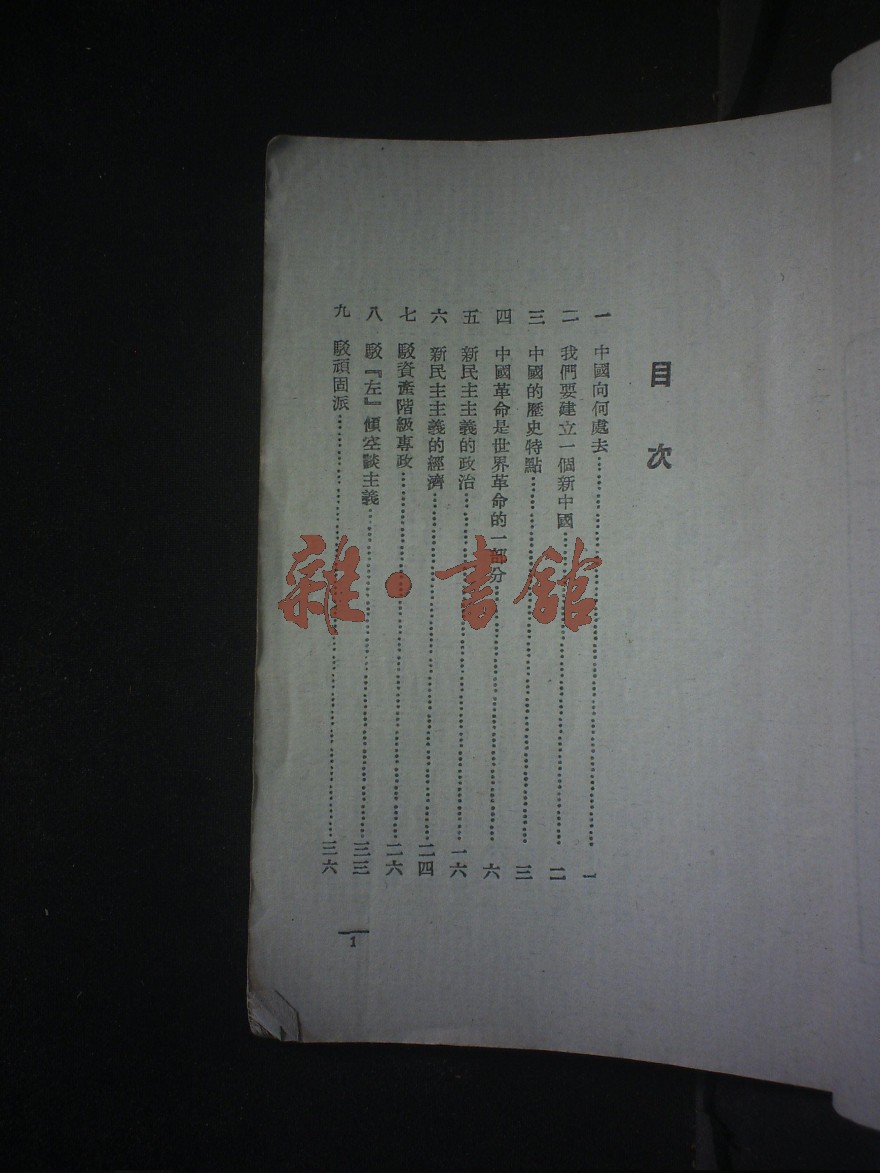 目次
一 中國向何處去……一
二 我們要建立一個新中國……二
三 中國的歷史特點……三
四 中國革命是世界革命的一部分……六
五 新民主主義的政治……一六
六 新民主主義的經濟……二四
七 駁資產階級專政……二六
八 駁『左』傾空談主義……三三
九 駁頑固派……三六
1
雜·書館